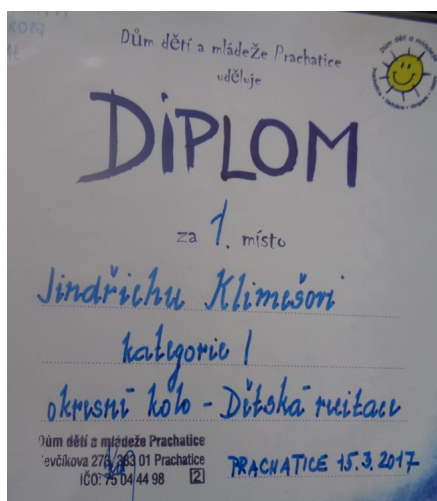 Dům dětí a mládeže Prachatice
uděluje
DIPLOM
za 1. místo
Jindřichu Klimešovi
kategorie I
okresní kolo - Dětská recitace
Dům dětí a mládeže Prachatice
383 01 Prachatice
IČO: 75 04 44 98 2
PRACHATICE 15.3.2017